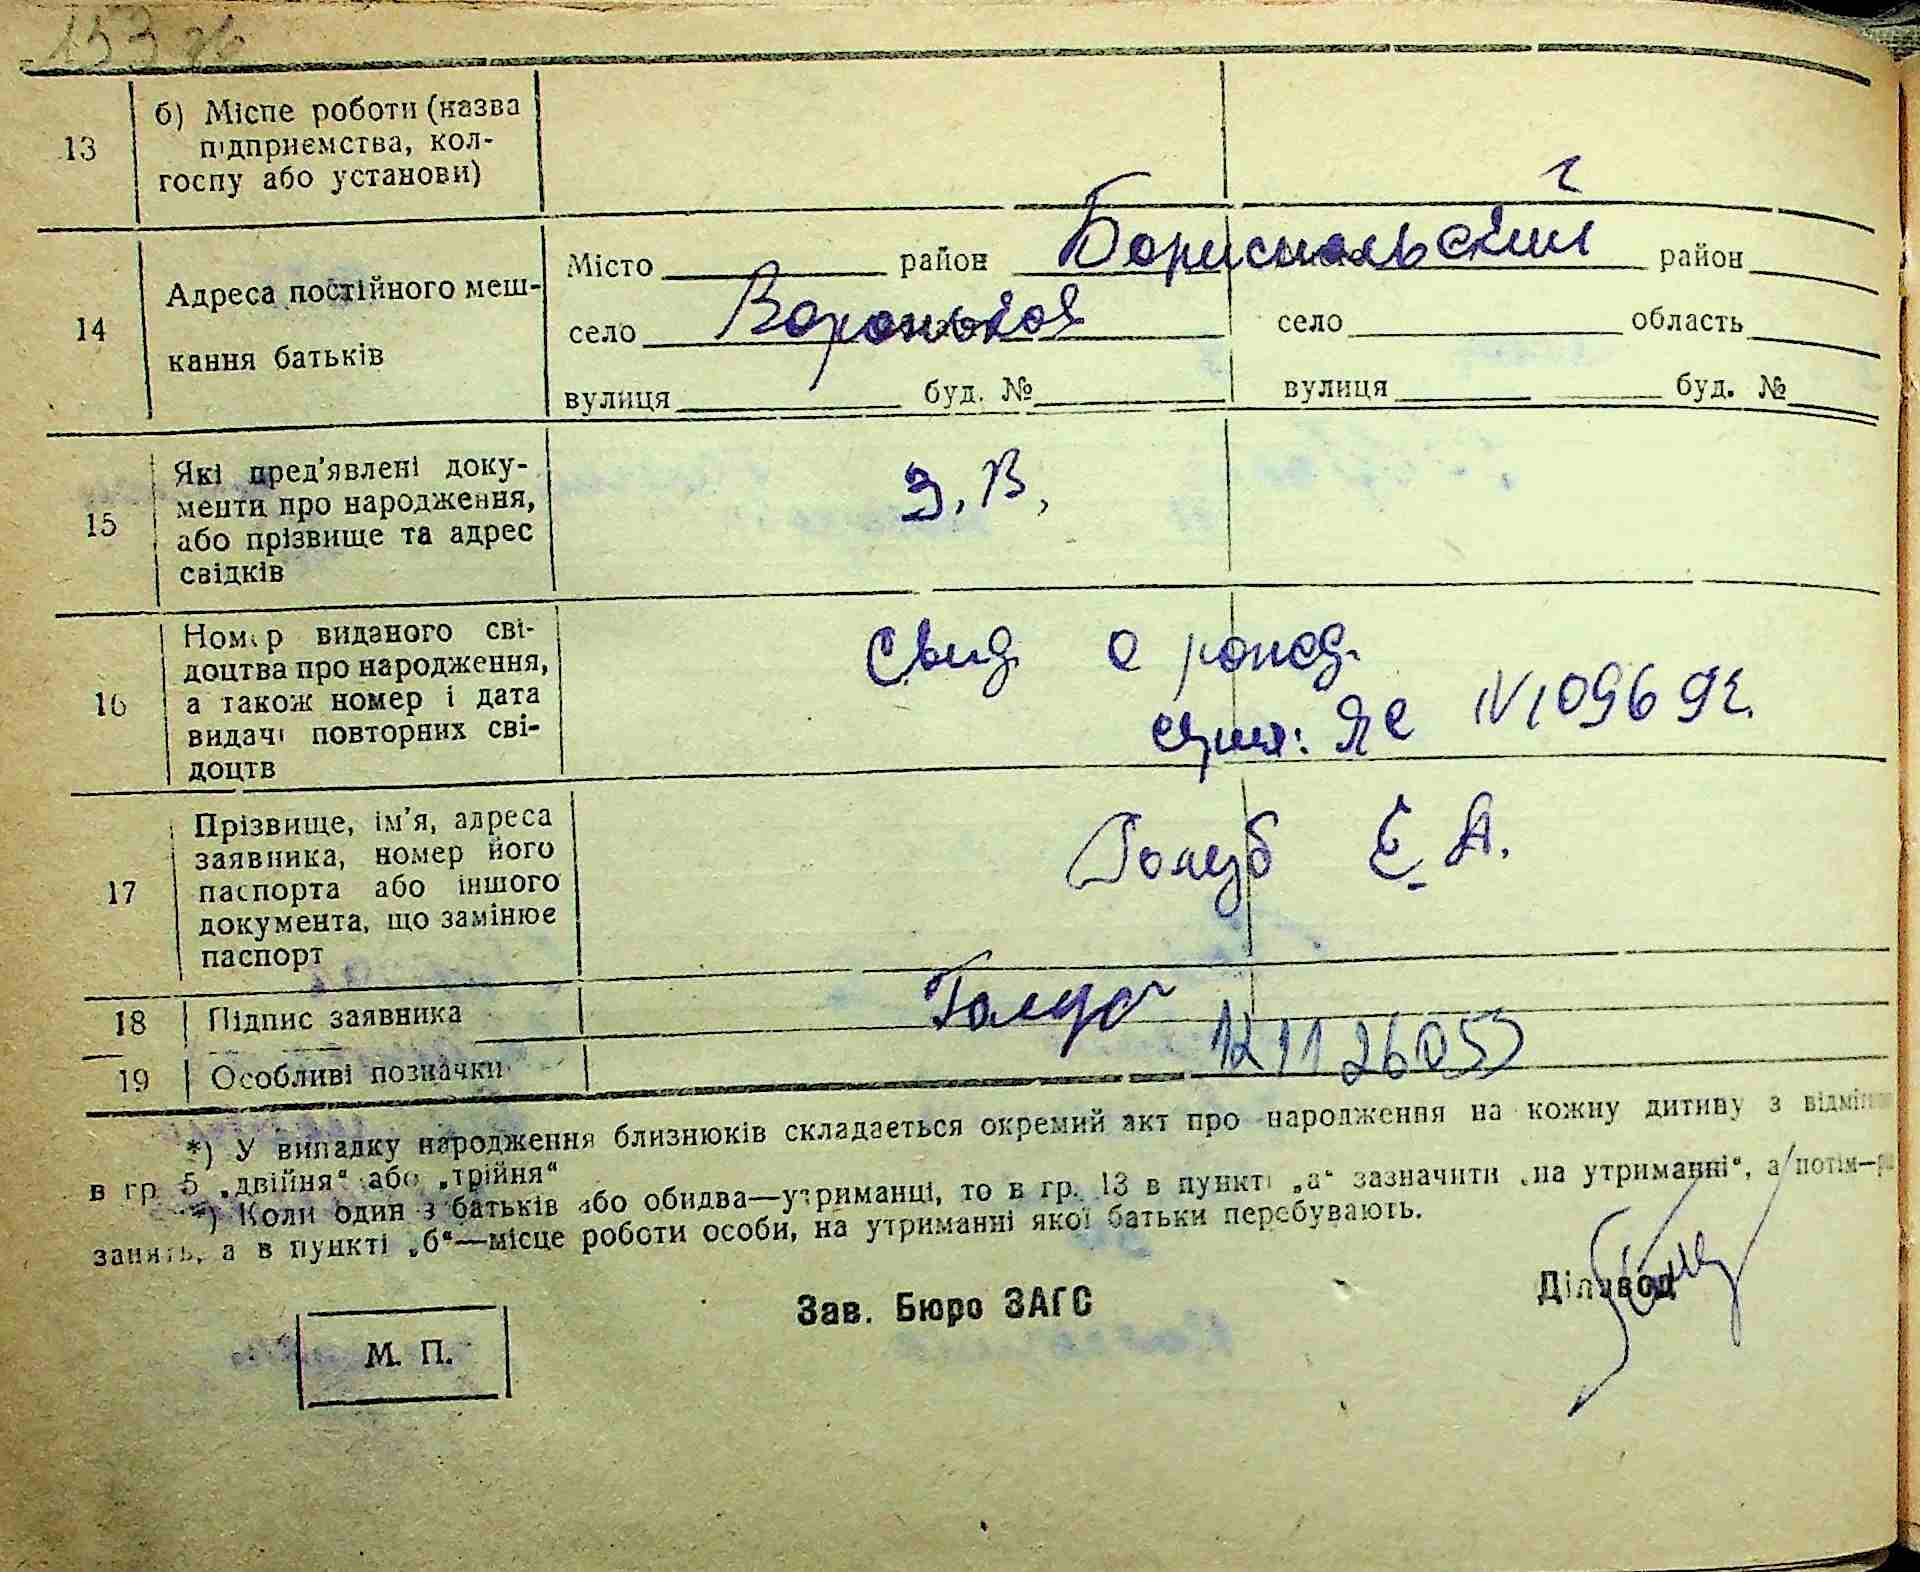 13 б) Місце роботи (назва
підприємства, кол-
госпу або установи)
14 Адреса постійного меш-
кання батьків
Місто район Бориспольский район
село Вороньков село область
вулиця буд. № вулиця буд. №
15 Які пред'явлені доку-
менти про народження,
або прізвище та адрес
свідків
З. В,
16 Номер виданого сві-
доцтва про народження,
а також номер і дата
видачі повторних сві-
доцтв
Свид. о рожд.
серия: ЯС N 109692.
17 Прізвище, ім'я, адреса
заявника, номер його
паспорта або іншого
документа, що замінює
паспорт
Голуб Е. А.
18 Підпис заявника Голуб
19 Особливі позначки
*) У випадку народження близнюків складається окремий акт про народження на кожну дитину з відміт
в гр 5 „двійня“ або „трійня“
*) Коли один з батьків або обидва—утриманці, то в гр. 13 в пункті „а“ зазначити „на утриманні“, а потім—
занять, а в пункті „б“—місце роботи особи, на утриманні якої батьки перебувають.
Зав. Бюро ЗАГС Діловод
М. П.